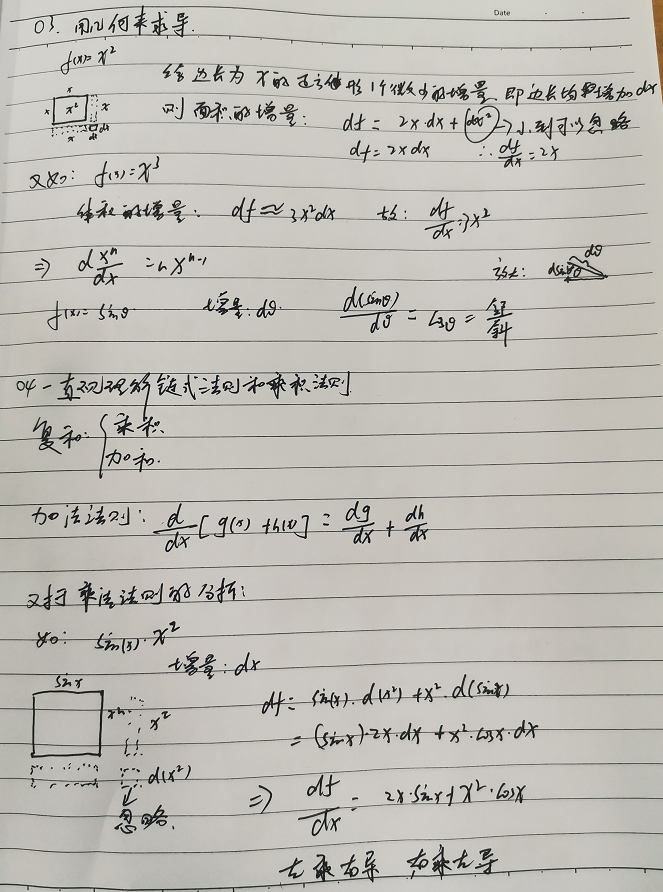 Date
03. 用几何来求导.
f(x) = x²
给边长为 x 的正方形 1个微少的增量, 即边长均增加 dx
x
x x² x
x dx
则 面积的增量: df = 2x·dx + dx² → 小到可以忽略
df = 2x dx ∴ df/dx = 2x
又如: f(x) = x³
体积的增量: df ≈ 3x²dx 故: df/dx = 3x²
⇒ d xⁿ/dx = n xⁿ⁻¹
放大: dsinθ θ dθ
f(x) = sinθ 增量: dθ. d(sinθ)/dθ = cosθ = 邻/斜
04 - 直观理解链式法则和乘积法则
复合: { 乘积.
加和.
加法法则: d/dx [g(x) + h(x)] = dg/dx + dh/dx
又对于 乘法法则的分析:
如: sin(x)·x²
增量: dx
sinx
x² x²
df = sin(x)·d(x²) + x²·d(sinx)
= (sinx)·2x·dx + x²·cosx·dx
d(x²)
↓
忽略.
⇒ df/dx = 2x·sinx + x²·cosx
左乘右导 右乘左导